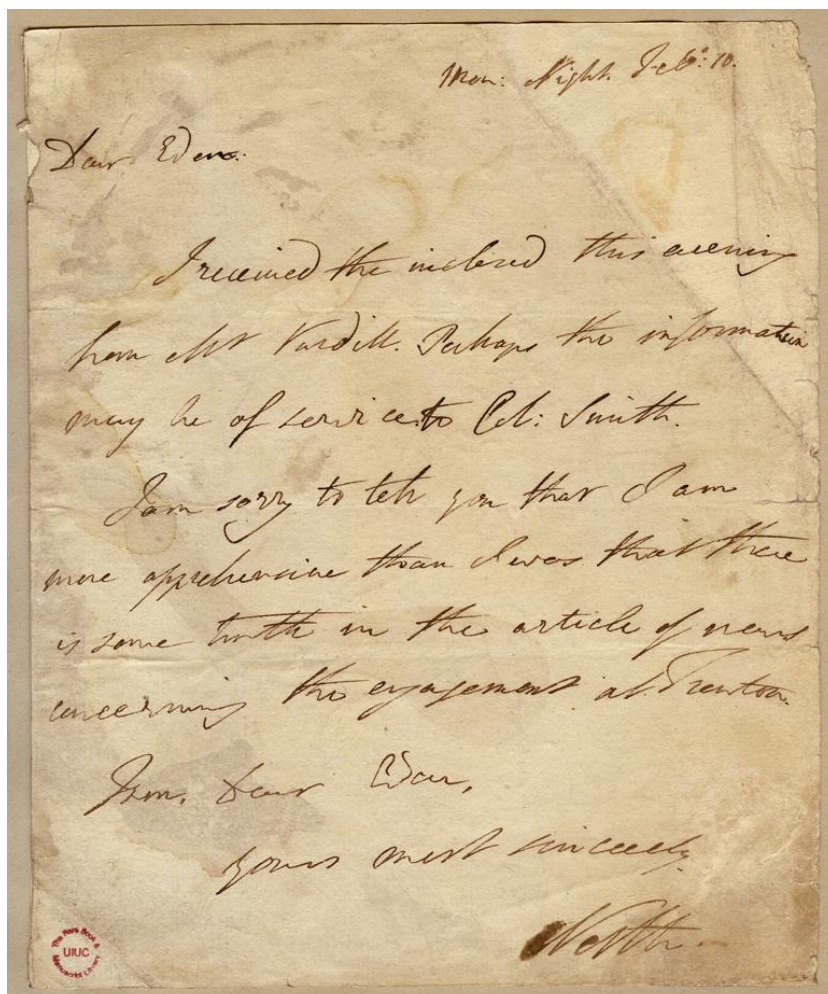 Mon: Night. Feb: 10.
Dear Eden.
I received the inclosed this evening
from Mr Vardill. Perhaps the information
may be of service to Col: Smith.
I am sorry to tell you that I am
more apprehensive than I was that there
is some truth in the article of news
concerning the engagement at Trenton.
I am, Dear Eden,
yours most sincerely
North
The Rare Book &
Manuscripts Library
UIUC